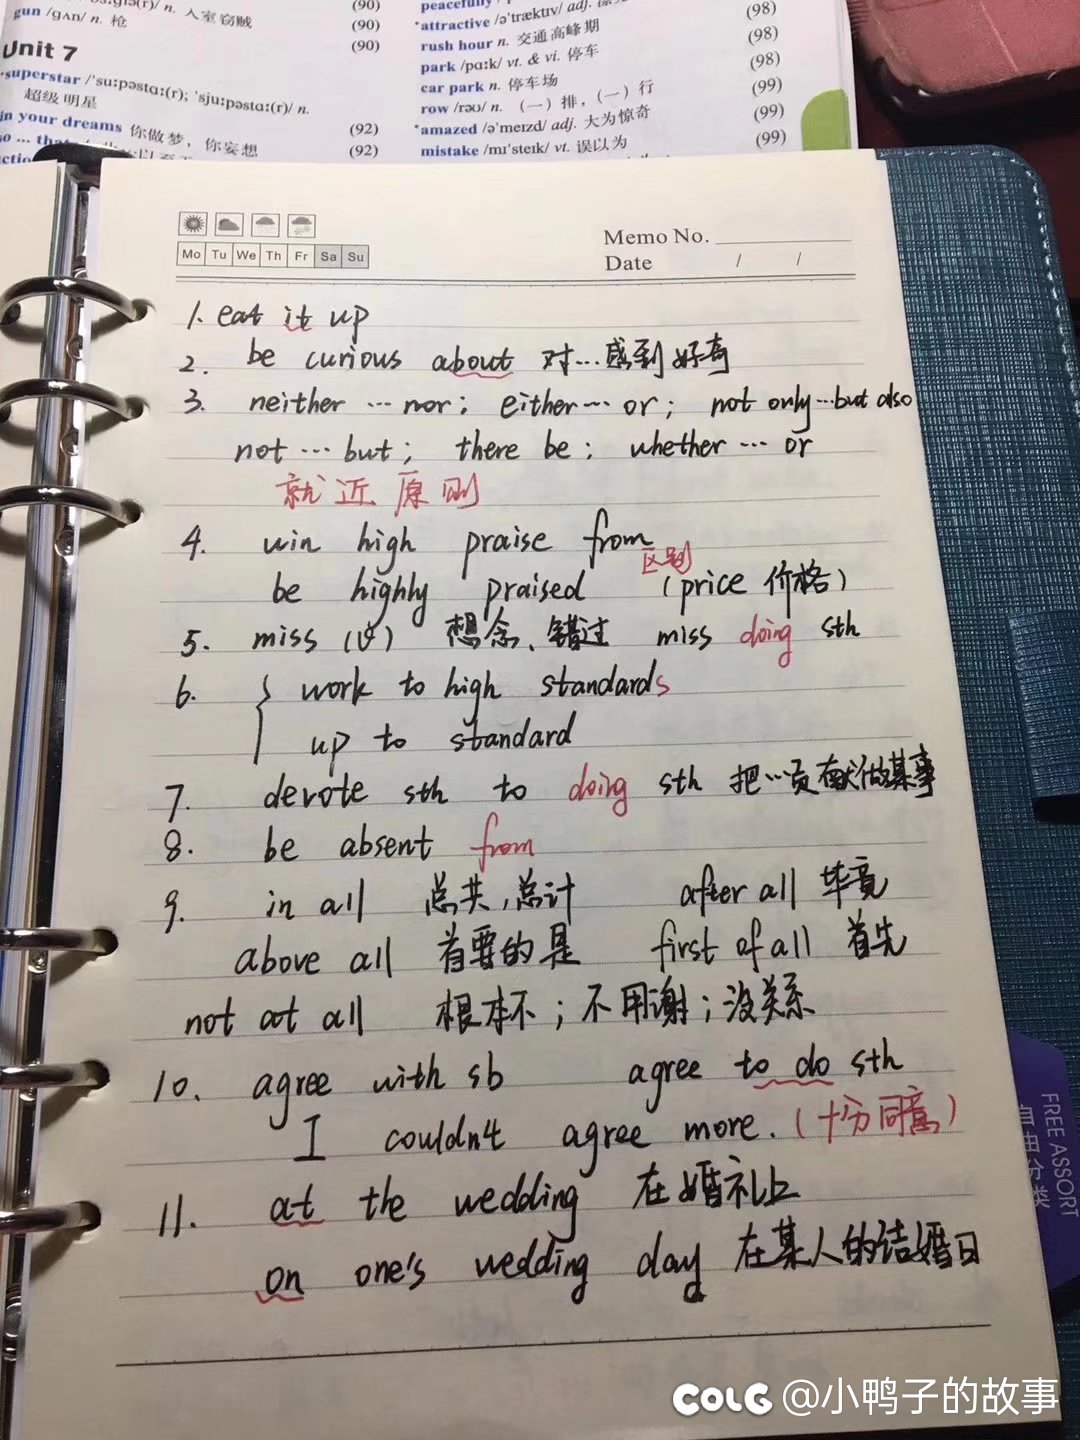 gun /gʌn/ n. 枪
(90)
入室窃贼
(90)
(90)
Unit 7
*superstar /'suːpəstɑː(r); 'sjuːpəstɑː(r)/ n.
超级明星
in your dreams 你做梦，你妄想
(92)
(92)
peacefully
*attractive /ə'træktɪv/ adj.
(98)
rush hour n. 交通高峰期
(98)
park /pɑːk/ vt. & vi. 停车
(98)
car park n. 停车场
row /rəʊ/ n. （一）排，（一）行
(99)
*amazed /ə'meɪzd/ adj. 大为惊奇
(99)
mistake /mɪ'steɪk/ vt. 误以为
(99)
Mo Tu We Th Fr Sa Su
Memo No.
Date / /
1. eat it up
2. be curious about 对…感到好奇
3. neither … nor; either … or; not only…but also
not … but; there be; whether … or
就近原则
4. win high praise from
区别
be highly praised (price 价格)
5. miss (v) 想念、错过 miss doing sth
6. { work to high standards
up to standard
7. devote sth to doing sth 把…贡献做某事
8. be absent from
9. in all 总共,总计 after all 毕竟
above all 首要的是 first of all 首先
not at all 根本不；不用谢；没关系
10. agree with sb agree to do sth
I couldn't agree more. (十分同意)
11. at the wedding 在婚礼上
on one's wedding day 在某人的结婚日
FREE ASSORT
自由分类
COLG @小鸭子的故事